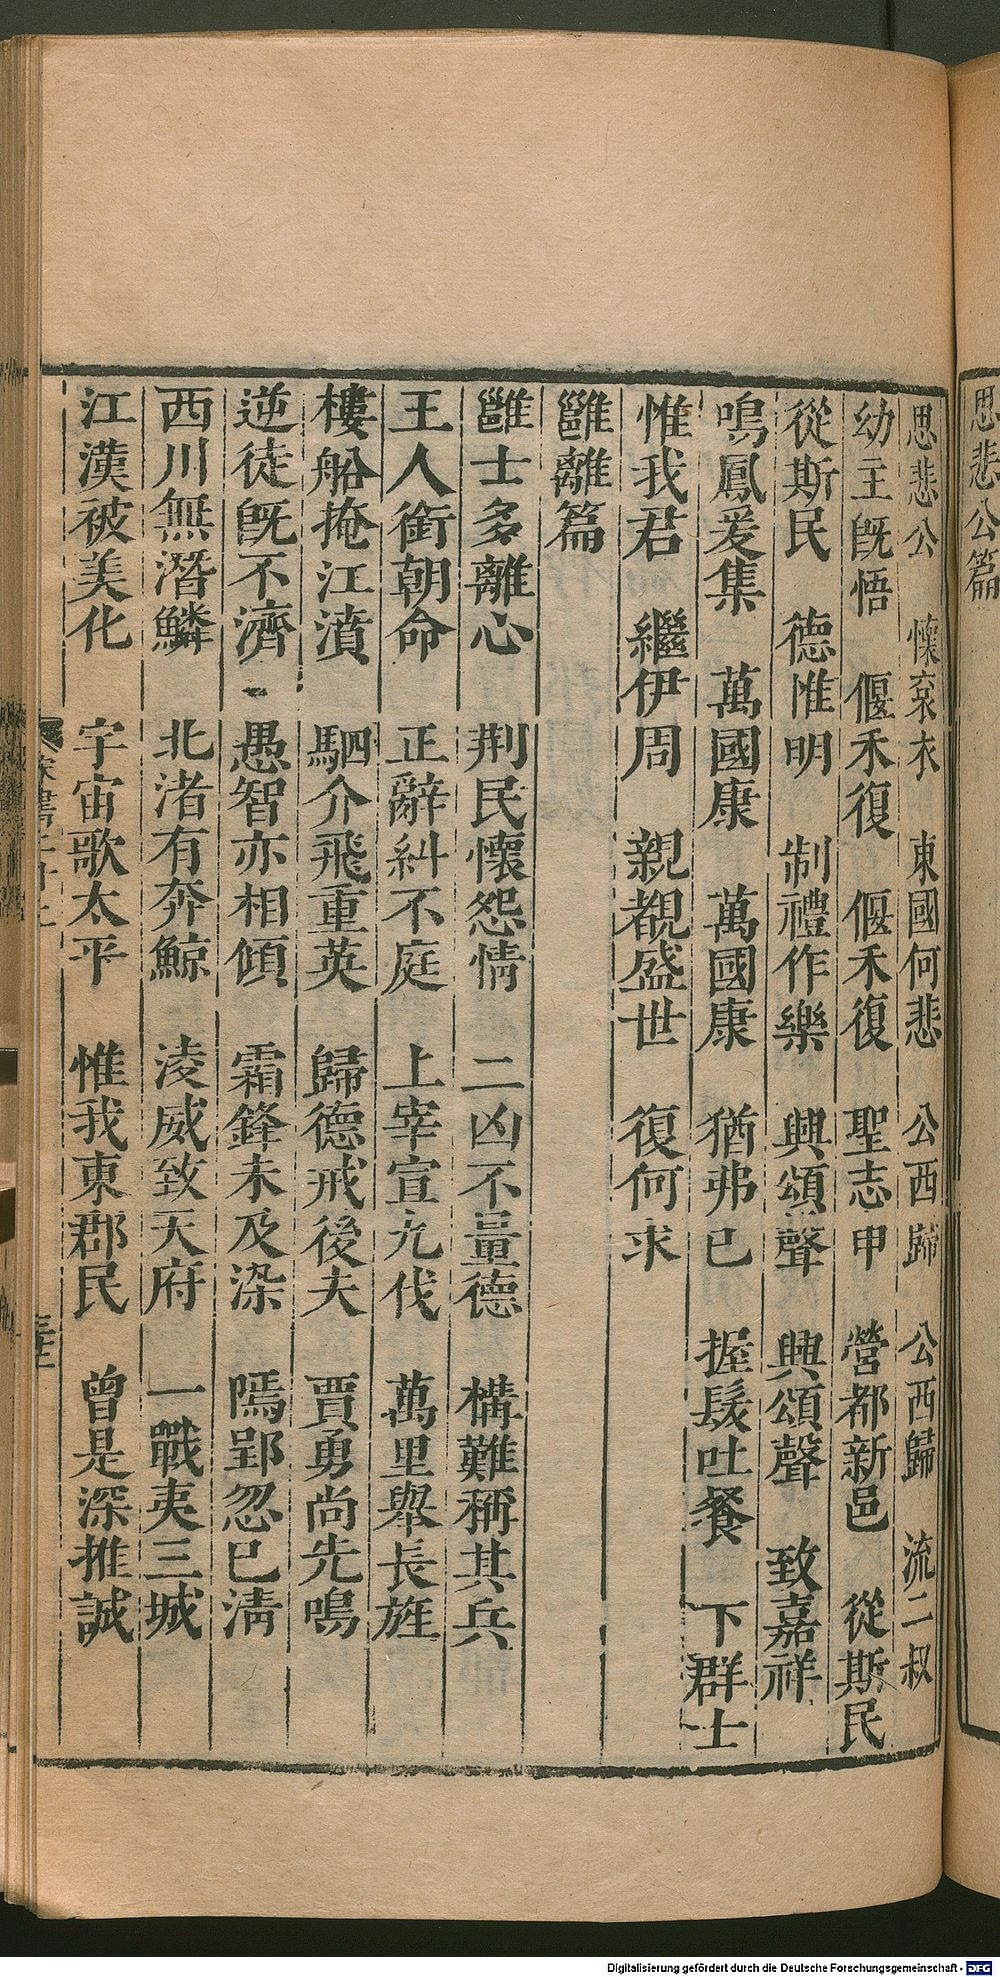 思悲公篇
思悲公　懷衮衣　東國何悲　公西歸　公西歸　流二叔
幼主旣悟　偃禾復　偃禾復　聖志申　營都新邑　從斯民
從斯民　德惟明　制禮作樂　興頌聲　興頌聲　致嘉祥
鳴鳳爰集　萬國康　萬國康　猶弗已　握髮吐餐　下群士
惟我君　繼伊周　親覩盛世　復何求
雝離篇
雝士多離心　荆民懷怨情　二凶不量德　構難稱其兵
王人銜朝命　正辭糾不庭　上宰宣九伐　萬里舉長旌
樓船掩江濆　駟介飛重英　歸德戒後夫　賈勇尚先鳴
逆徒旣不濟　愚智亦相傾　霜鋒未及染　鄢郢忽已淸
西川無潛鱗　北渚有奔鯨　淩威致天府　一戰夷三城
江漢被美化　宇宙歌太平　惟我東郡民　曾是深推誠
Digitalisierung gefördert durch die Deutsche Forschungsgemeinschaft - DFG